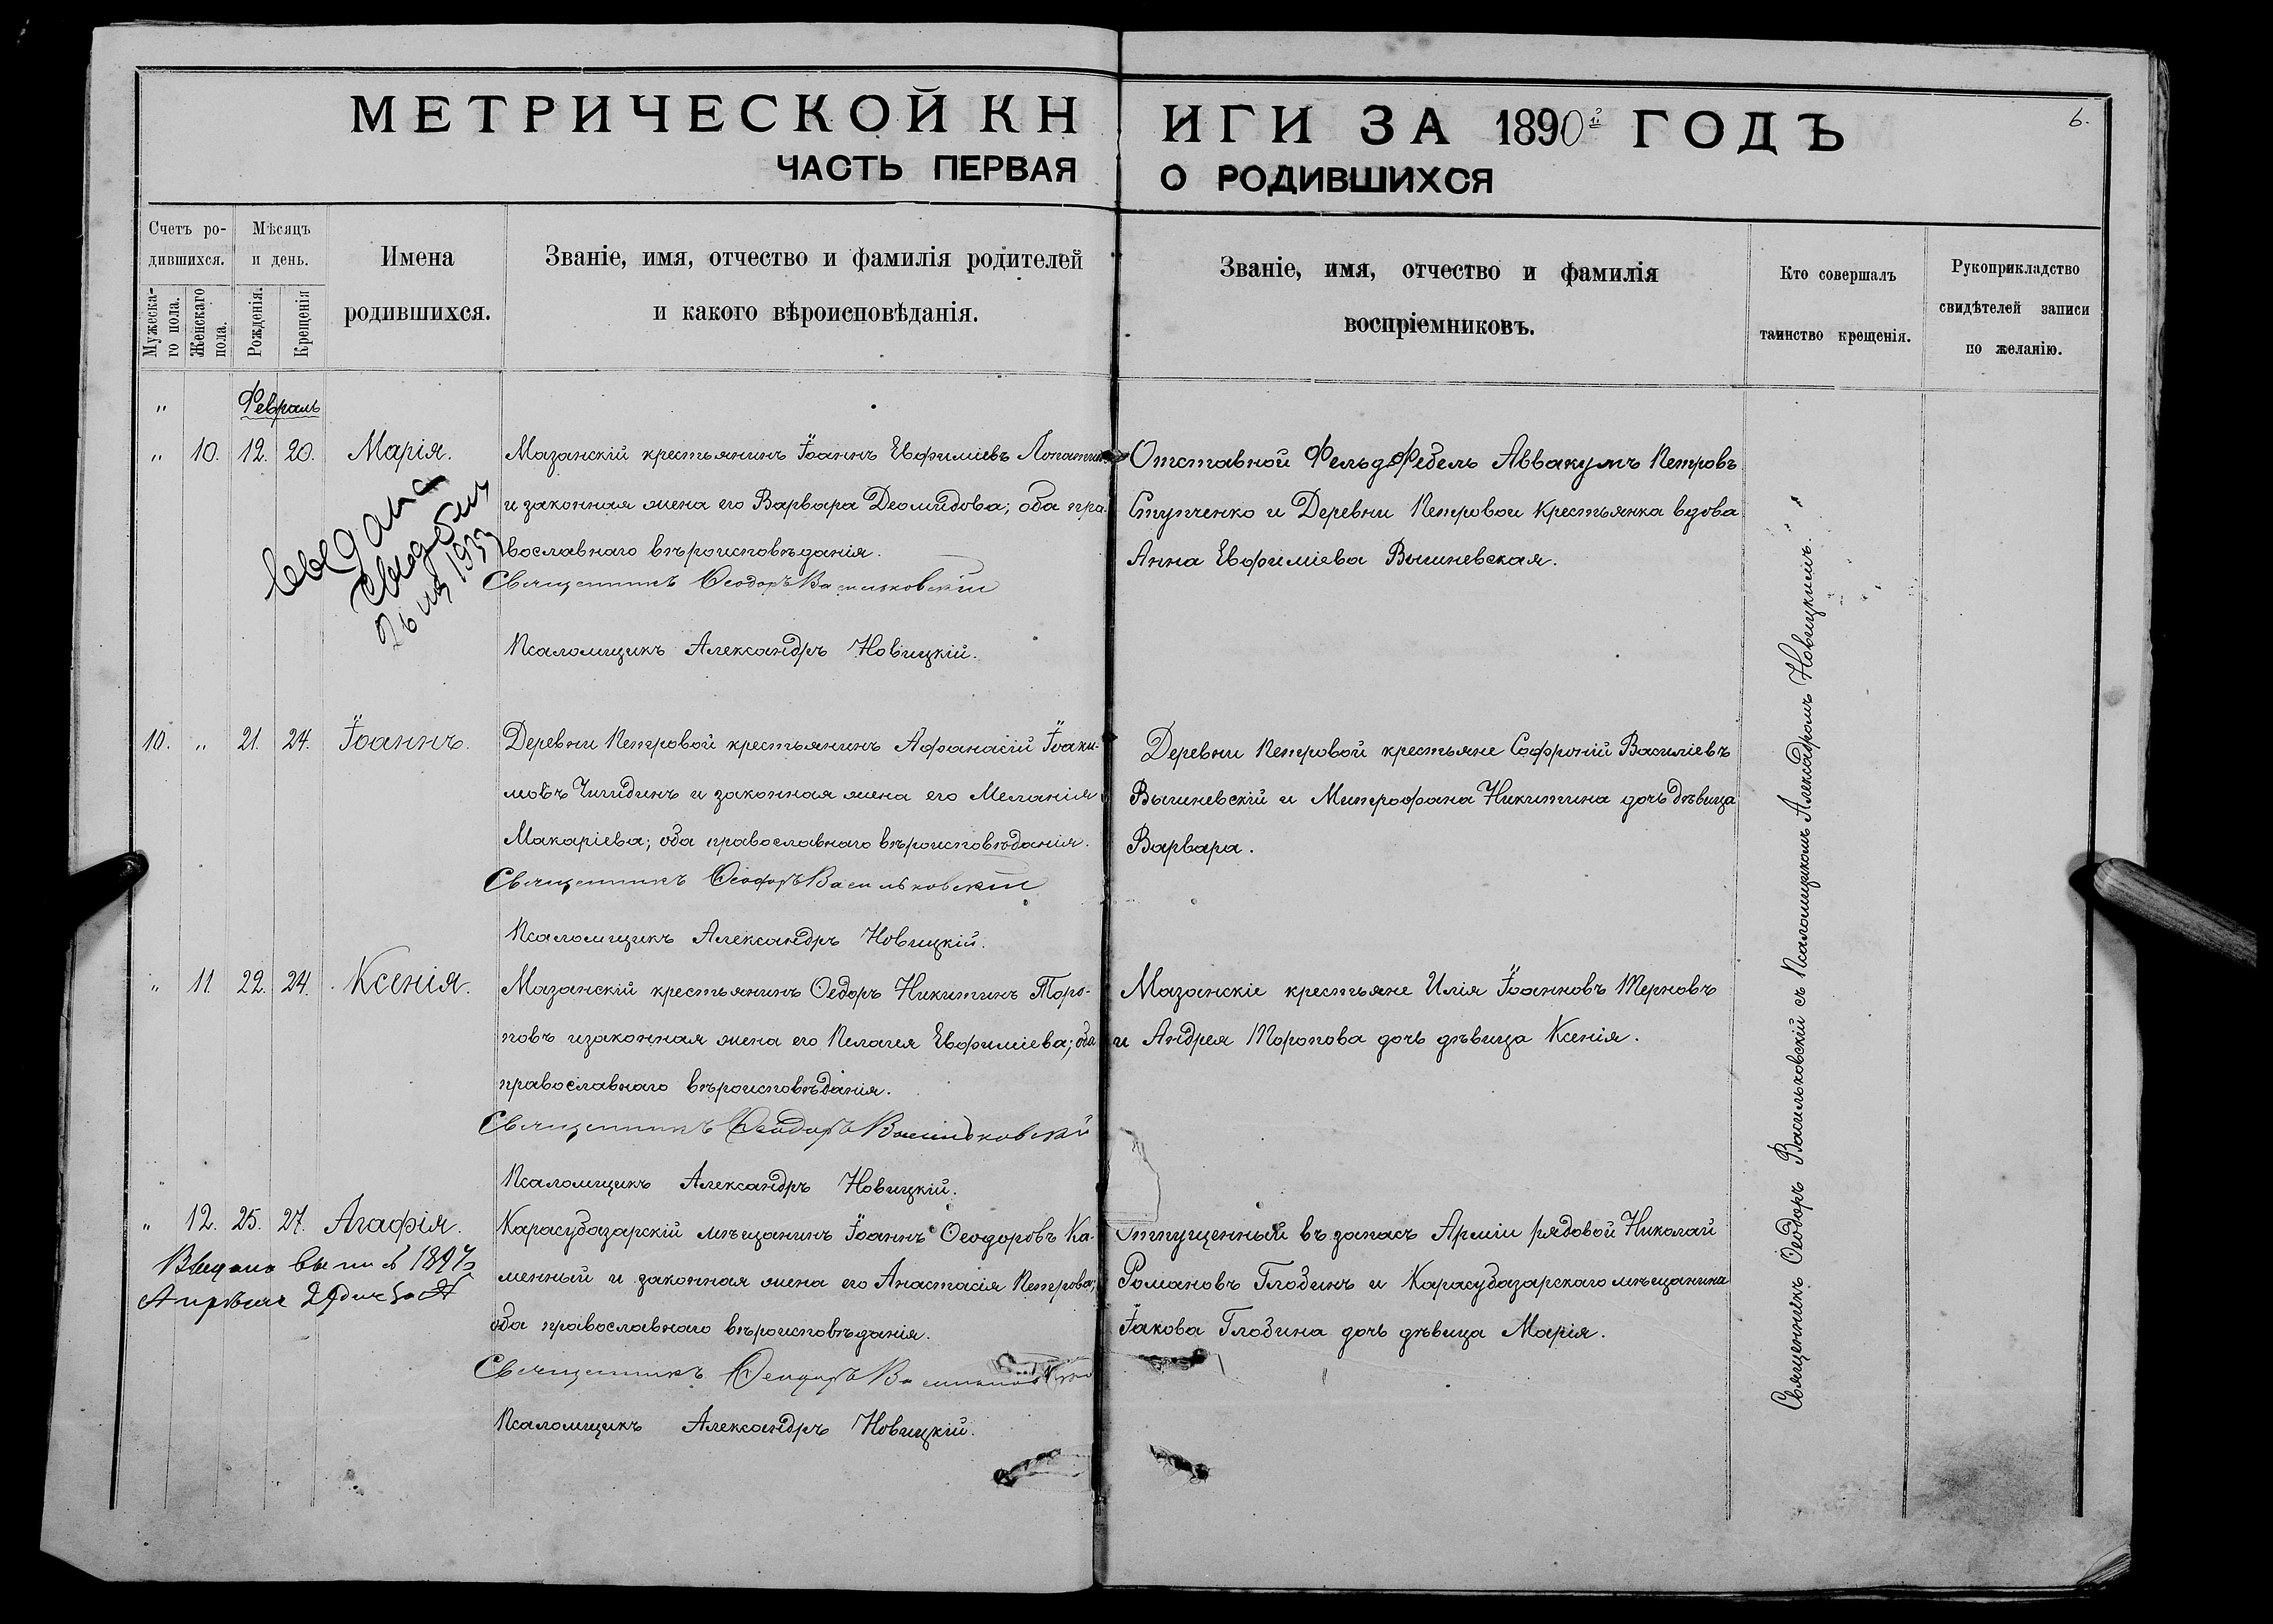 МЕТРИЧЕСКОЙ КНИГИ ЗА 1890й ГОДЪ
6.
ЧАСТЬ ПЕРВАЯ О РОДИВШИХСЯ
Счетъ ро-
дившихся.
Мужеска-
го пола.
Женскаго
пола.
Мѣсяцъ
и день.
Рожденія.
Крещенія
Имена
родившихся.
Званіе, имя, отчество и фамилія родителей
и какого вѣроисповѣданія.
Званіе, имя, отчество и фамилія
воспріемниковъ.
Кто совершалъ
таинство крещенія.
Рукоприкладство
свидѣтелей записи
по желанію.
" Февраль
" 10. 12. 20. Марія.
Мазанскій крестьянинъ Іоаннъ Евфиміевъ Лопатин
и законная жена его Варвара Деомидова; оба пра-
вославнаго вѣроисповѣданія.
Священникъ Ѳеодоръ Васильковскій
Псаломщикъ Александръ Новицкій.
Отставной Фельдфебель Аввакумъ Петровъ
Ступченко и Деревни Петровой крестьянка вдова
Анна Евфиміева Вышневская.
10. " 21. 24. Іоаннъ.
Деревни Петровой крестьянинъ Афанасій Іоаки-
мовъ Чигидинъ и законная жена его Меланія
Макаріева; оба православнаго вѣроисповѣданія.
Священникъ Ѳеодоръ Васильковскій
Псаломщикъ Александръ Новицкій.
Деревни Петровой крестьяне Софроній Василіевъ
Вышневскій и Митрофана Никитина дочь дѣвица
Варвара.
" 11. 22. 24. Ксенія.
Мазанскій крестьянинъ Ѳедоръ Никитинъ Торо-
повъ и законная жена его Пелагея Евфиміева; оба
православнаго вѣроисповѣданія.
Священникъ Ѳеодоръ Васильковскій
Псаломщикъ Александръ Новицкій.
Мазанскіе крестьяне Илія Іоанновъ Терновъ
и Андрея Торопова дочь дѣвица Ксенія.
" 12. 25. 27. Агафія.
Карасубазарскій мѣщанинъ Іоаннъ Ѳеодоровъ Ка-
менный и законная жена его Анастасія Петрова;
оба православнаго вѣроисповѣданія.
Священникъ Ѳеодоръ Васильковскій
Псаломщикъ Александръ Новицкій.
Отпущенный въ запасъ Арміи рядовой Николай
Романовъ Глобинъ и Карасубазарскаго мѣщанина
Іакова Глобина дочь дѣвица Марія.
Священникъ Ѳеодоръ Васильковскій съ Псаломщикомъ Александромъ Новицкимъ. " "